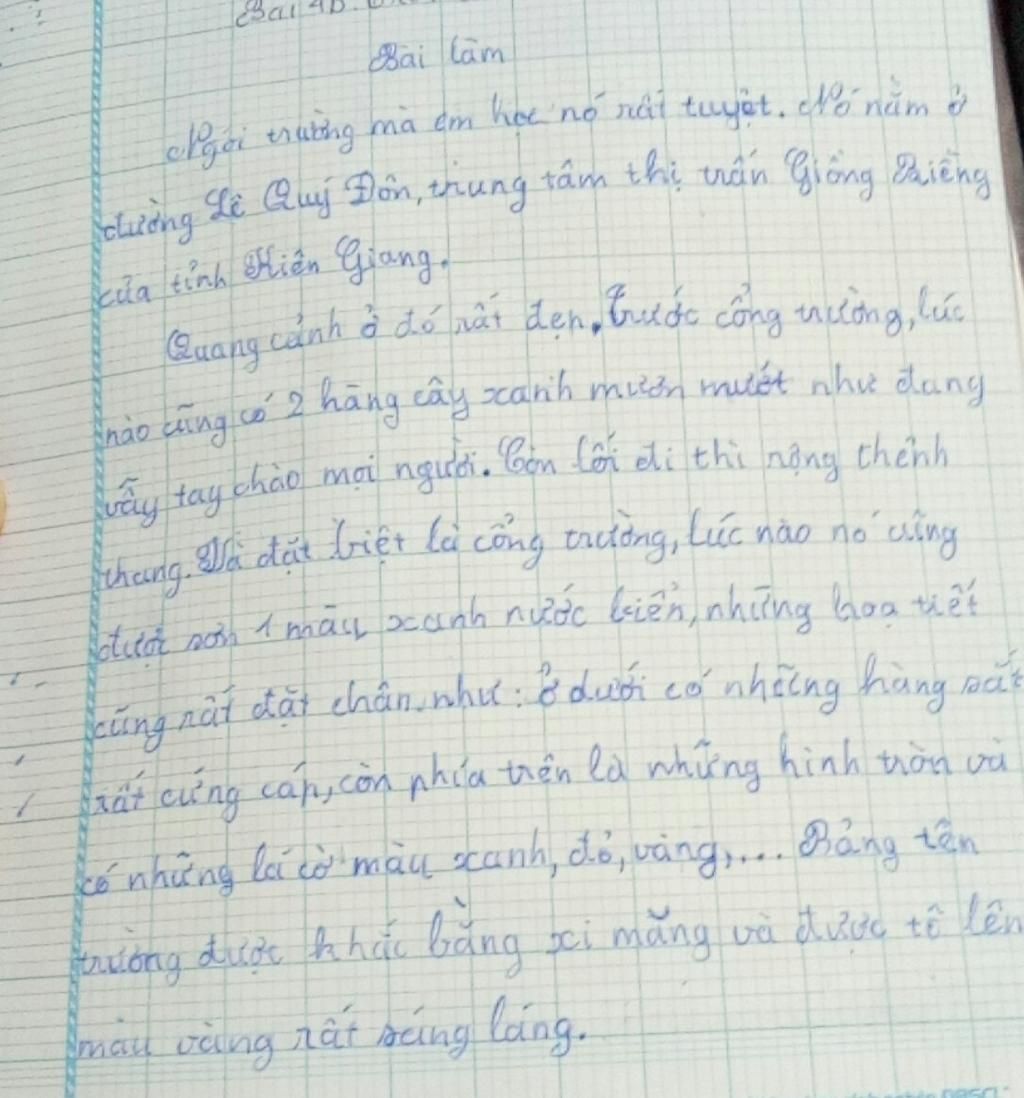 Bài làm
Ngôi trường mà em học nó rất tuyệt. Nó nằm ở
đường Lê Quý Đôn, trung tâm thị trấn Giồng Riềng
của tỉnh Kiên Giang.
Quang cảnh ở đó rất đẹp. Trước cổng trường, lúc
nào cũng có 2 hàng cây xanh mươn mướt như đang
vẫy tay chào mọi người. Còn lối đi thì rộng thênh
thang. Và đặt biệt là cổng trường, lúc nào nó cũng
được sơn 1 màu xanh nước biển, những hoa tiết
cũng rất đặt chân như: Ở dưới có những hàng sắt
rất cứng cáp, còn phía trên là những hình tròn và
có những lá cờ màu xanh, đỏ, vàng,... Bảng tên
trường được khắc bằng xi măng và được tô lên
màu vàng rất sáng láng.